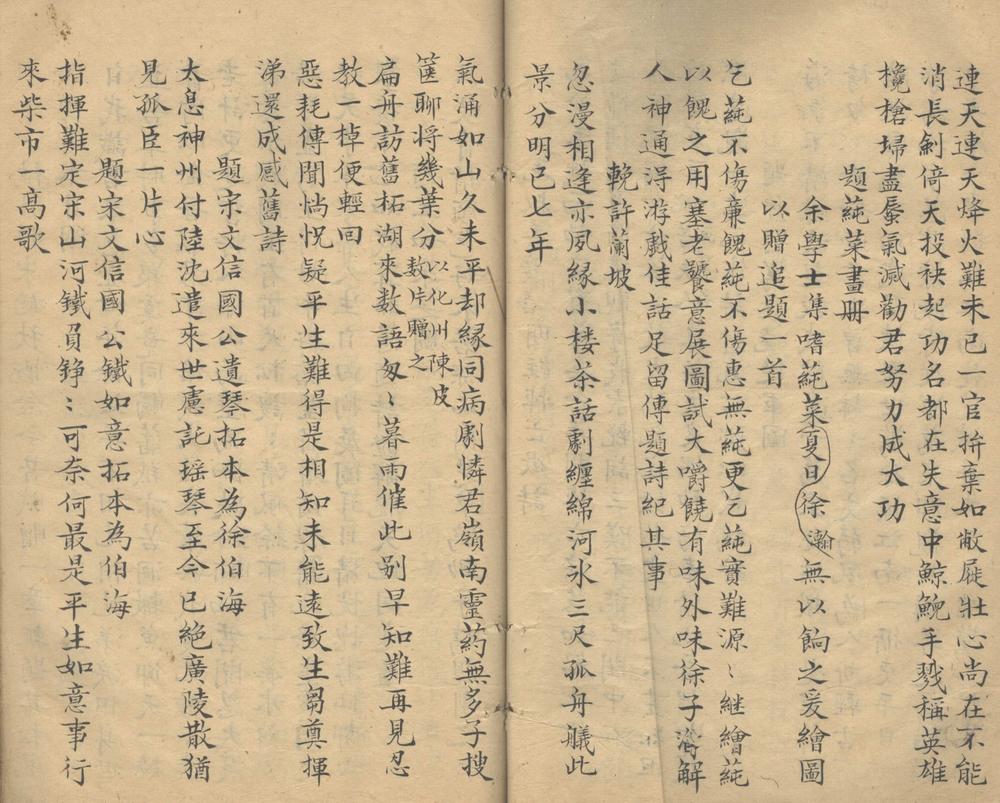 連天連天烽火難未已一官拚棄如敝屣壯心尚在不能
消長劍倚天投袂起功名都在失意中鯨鯢手戮稱英雄
欃槍埽盡蜃氣減勸君努力成大功
題蒓菜畫册
余學士集嗜蒓菜夏日徐瀚無以餉之爰繪圖
以贈追題一首
乞蒓不傷廉餽蒓不傷惠無蒓更乞蒓實難源〻継繪蒓
以餽之用塞老饕意展圖試大嚼饒有味外味徐子解
人神通淂游戲佳話足留傳題詩紀其事
輓許蘭坡
忽漫相逢亦夙緣小楼茶話劇纏綿河氷三尺孤舟艤此
景分明已七年
氣涌如山久未平却緣同病劇憐君嶺南靈药無多子搜
篋聊将幾葉分以化州陳皮数片贈之
扁舟訪舊柘湖来数語匆〻暮雨催此别早知難再見忍
教一棹便輕回
惡耗傳聞惝怳疑平生難得是相知未能遠致生芻奠揮
涕還成感舊詩
題宋文信國公遺琴拓本為徐伯海
太息神州付陸沈遣来世慮託瑶琴至今已絶廣陵散猶
見孤臣一片心
題宋文信國公鐵如意拓本為伯海
指揮難定宋山河鐵肩錚〻可奈何最是平生如意事行
來柴市一高歌